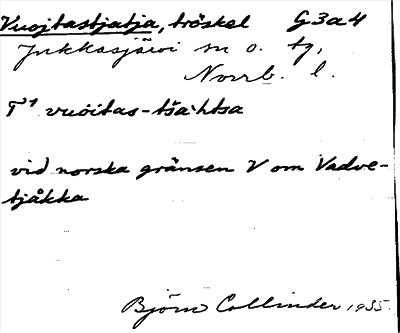 Vuojtastjatja, tröskel G3a4
Jukkasjärvi sn o. tg,
Norrb. l.
T¹ vuoitas-tša·htsa
vid norska gränsen V om Vadve-
tjåkka
Björn Collinder 1935.